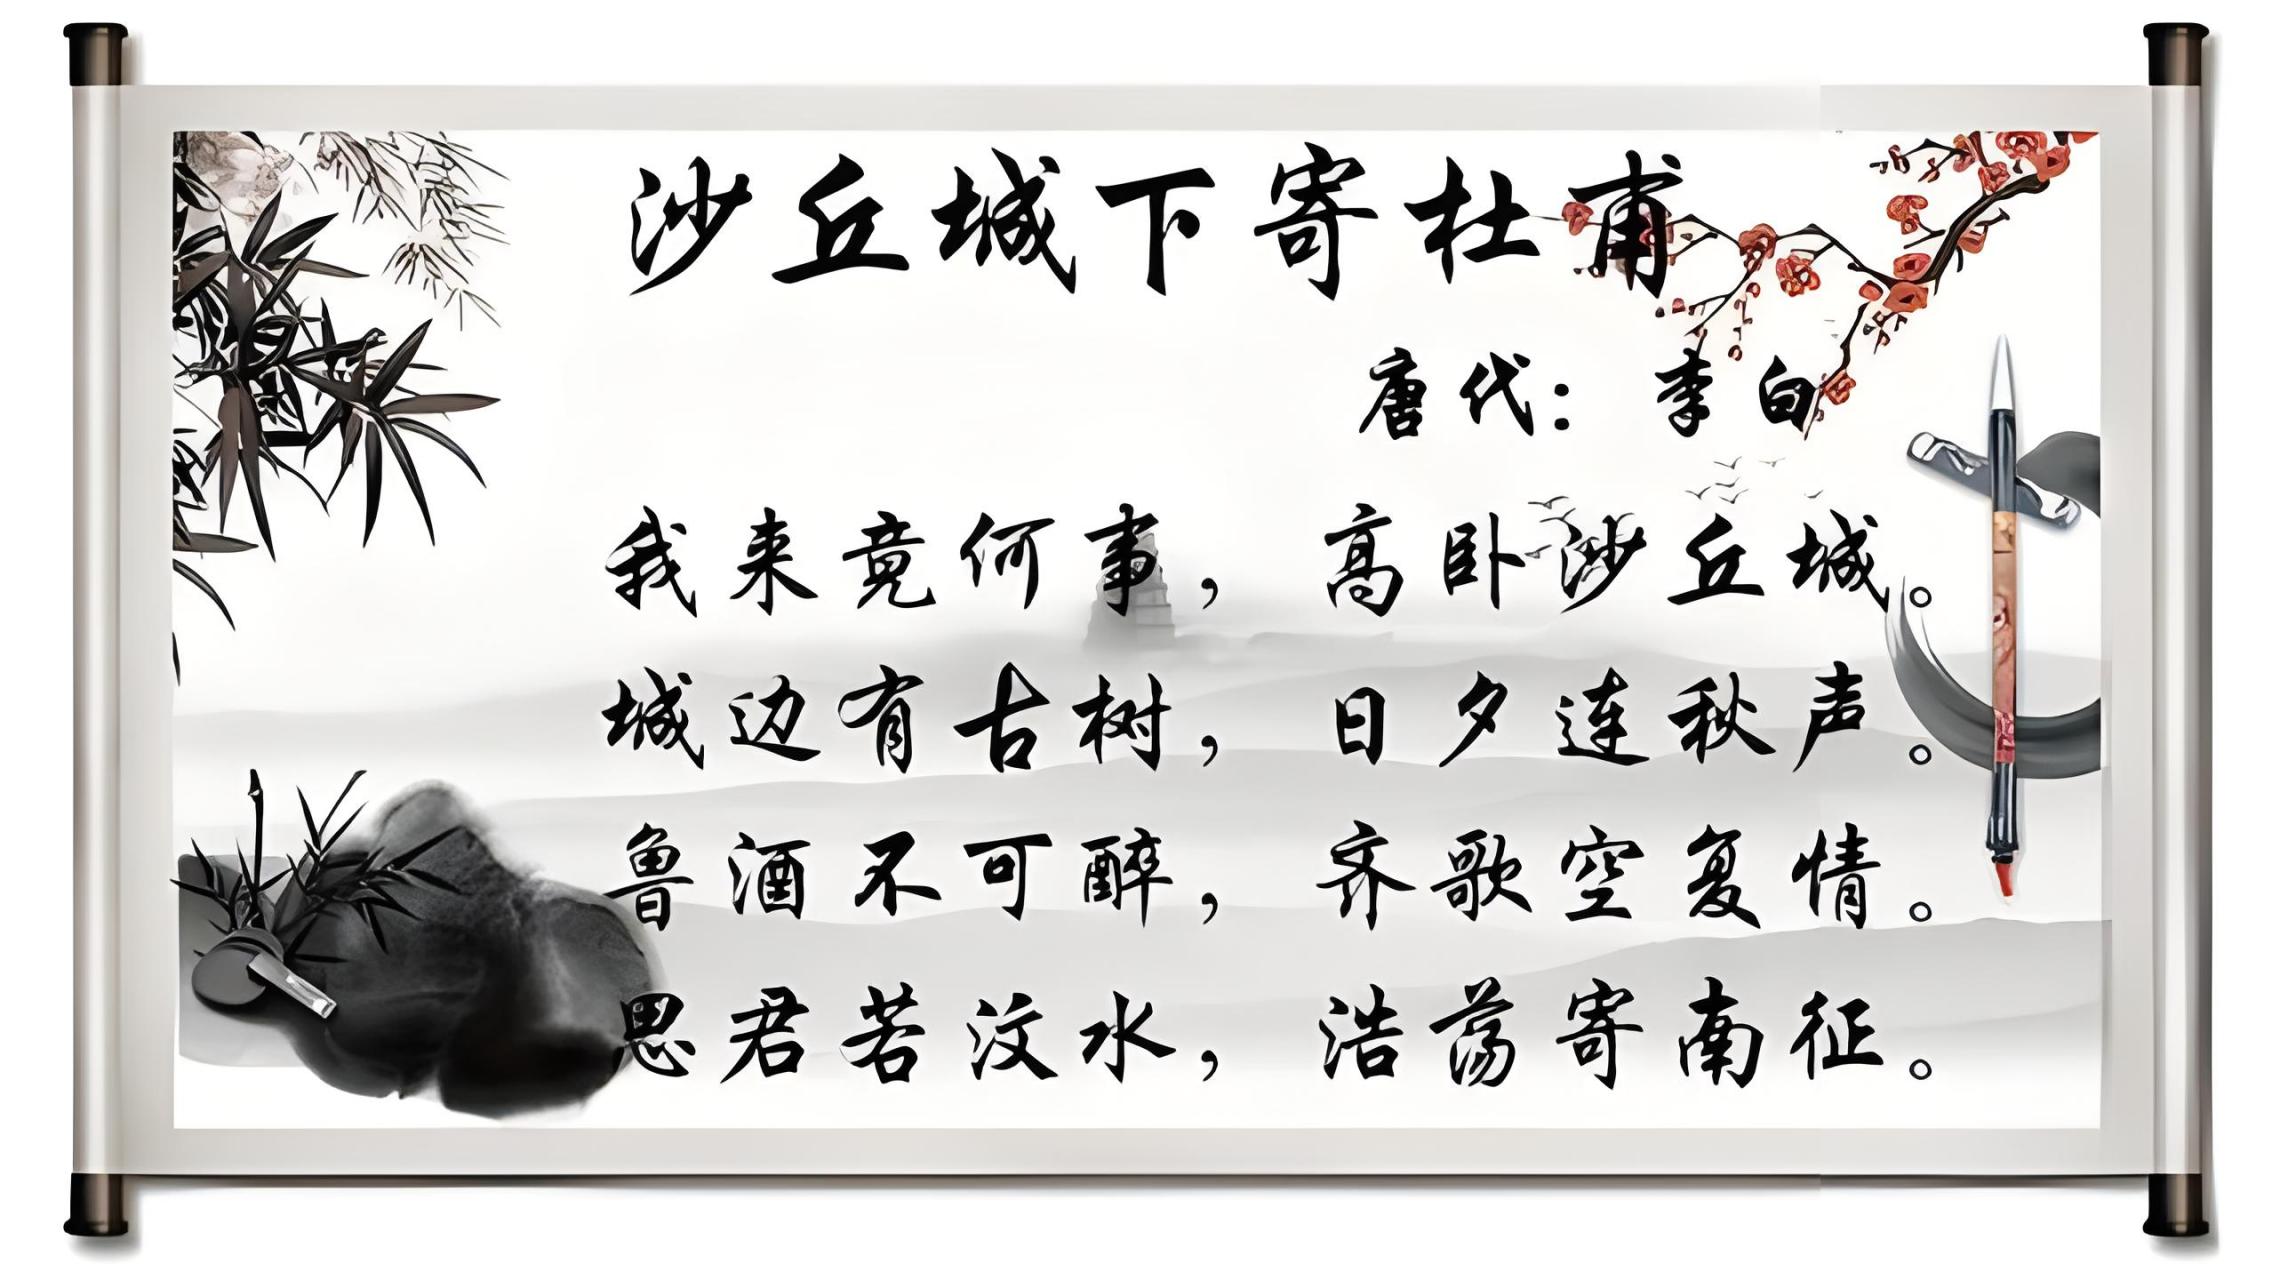 沙丘城下寄杜甫
唐代：李白
我来竟何事，高卧沙丘城。
城边有古树，日夕连秋声。
鲁酒不可醉，齐歌空复情。
思君若汶水，浩荡寄南征。